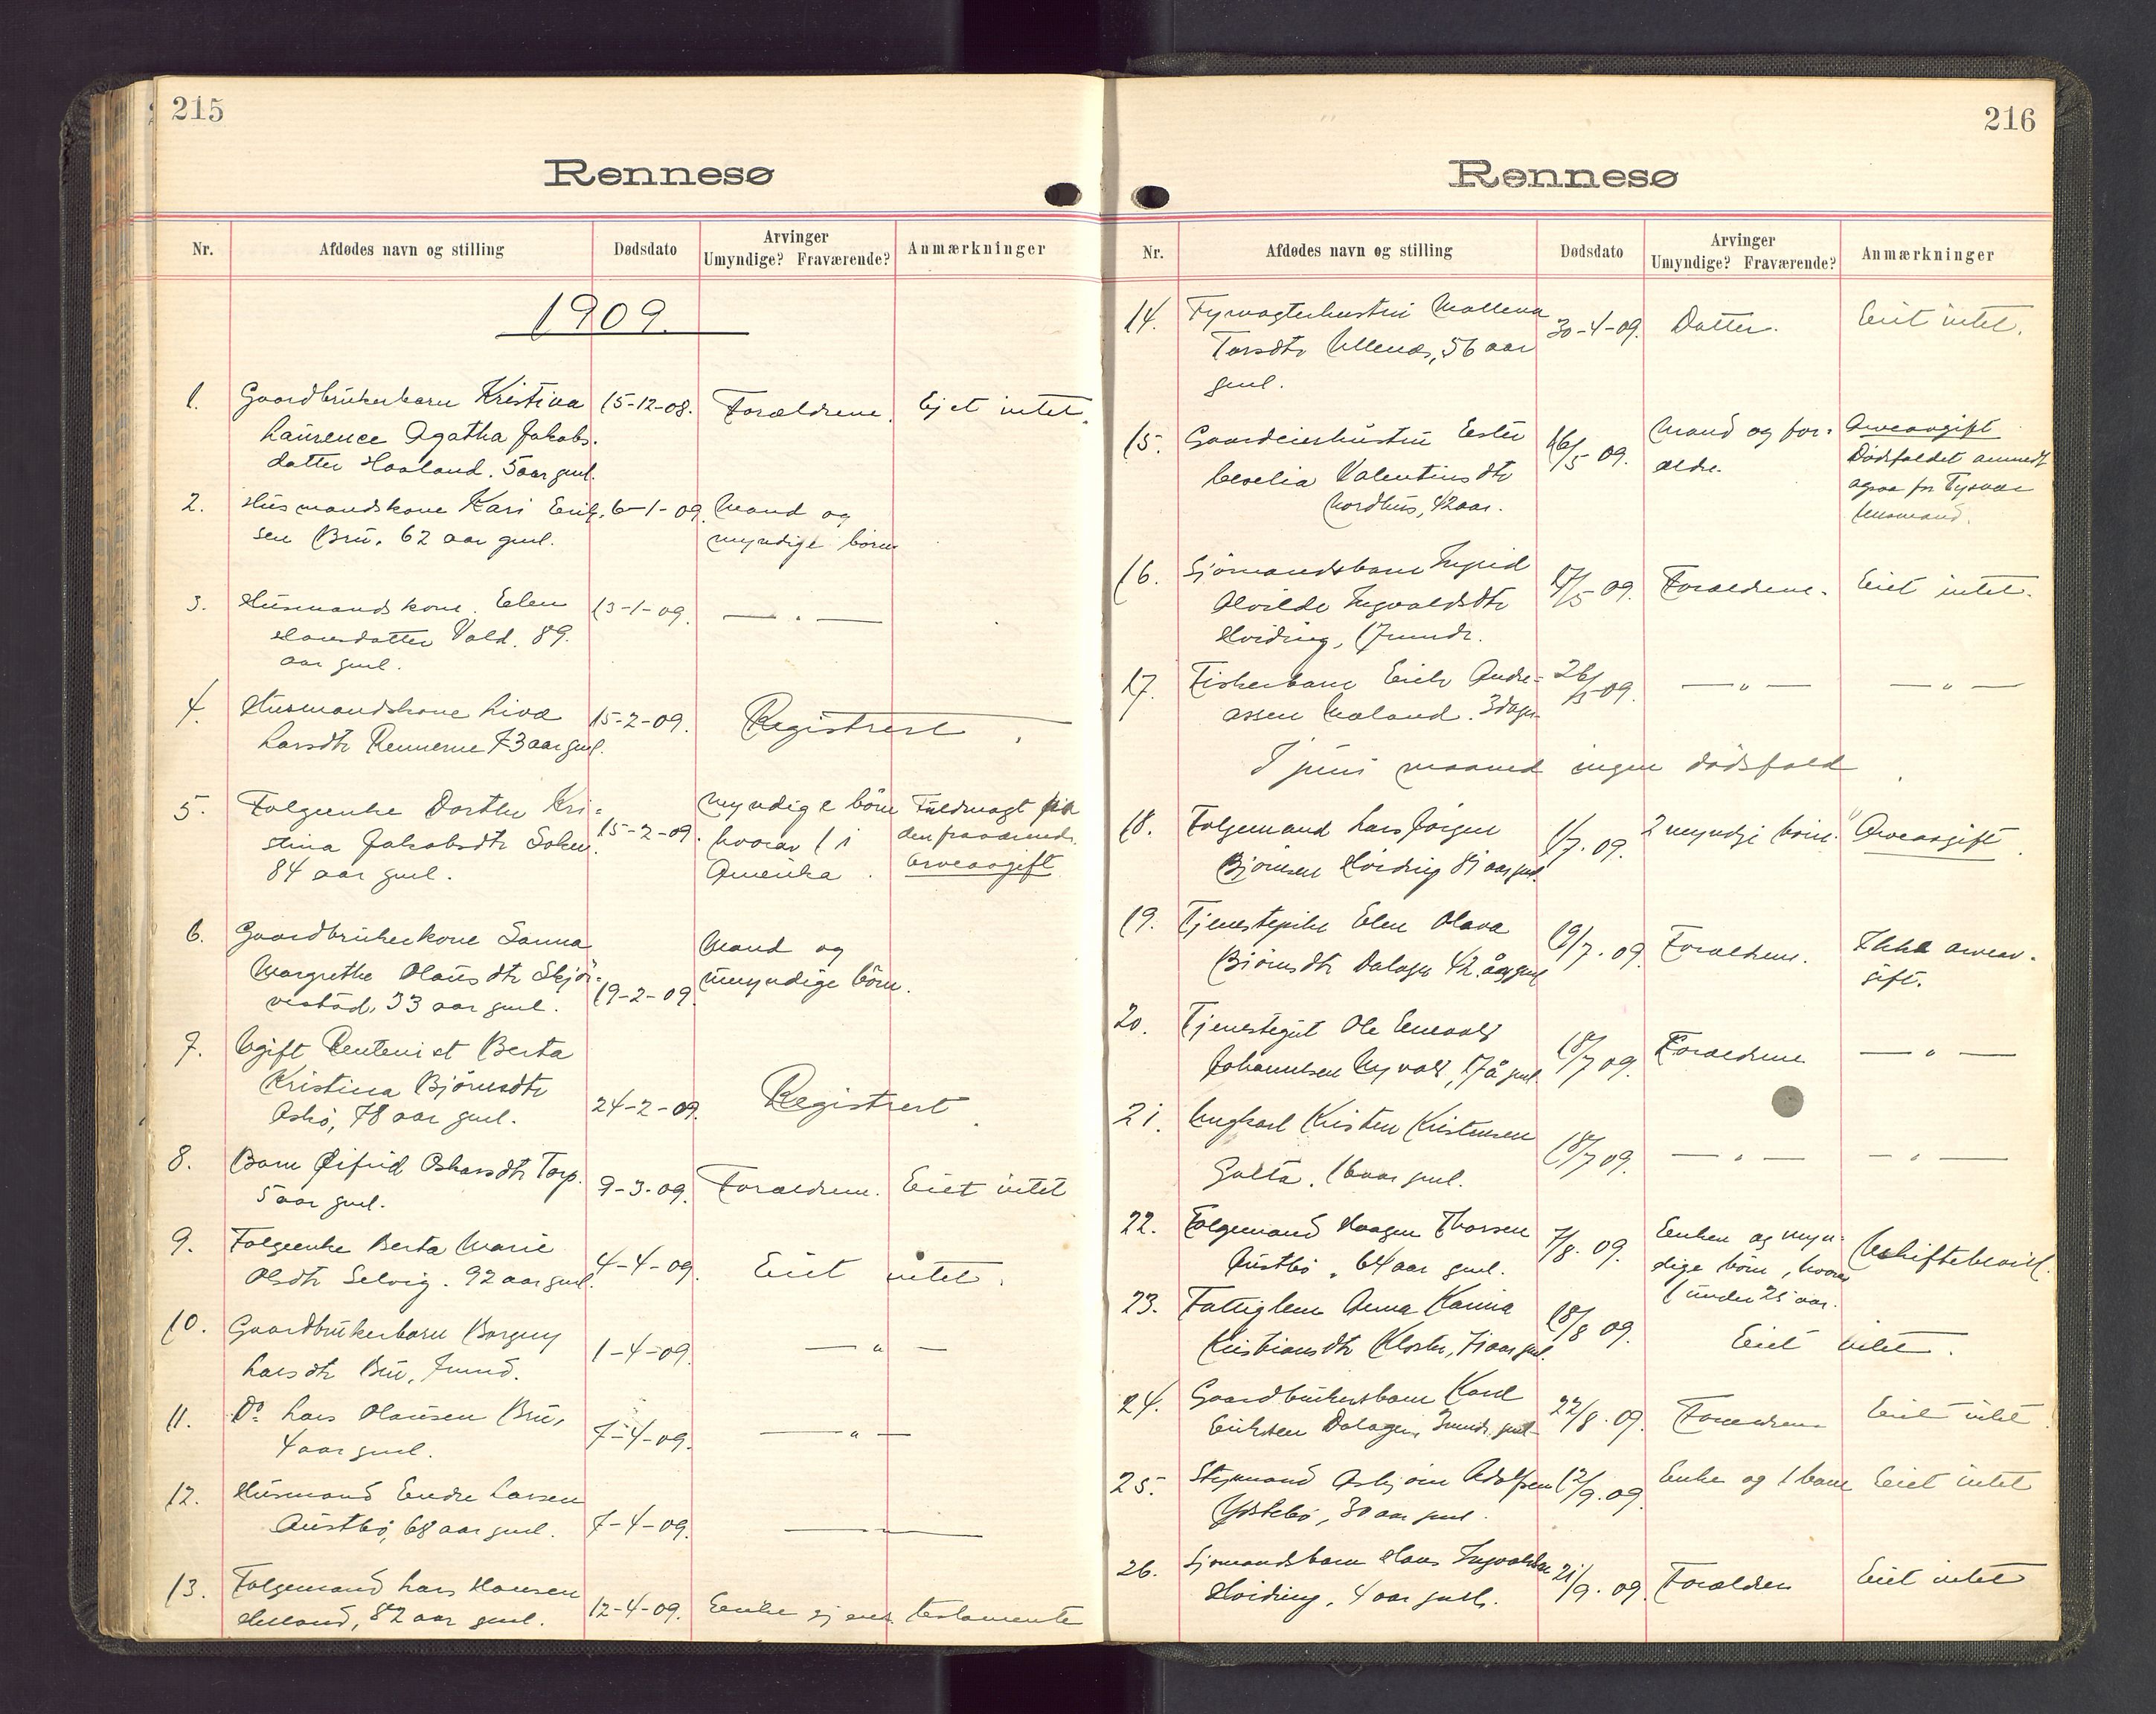 215
Rennesø
Nr.
Afdødes navn og stilling
Dødsdato
Arvinger
Umyndige? Fraværende?
Anmærkninger
1909.
1. Gaardbrukerbarn Kristina 15-12-08. Forældrene. Ejet intet.
Laurence Agatha Jakobs-
datter Haaland. 5 aar gml.
2. Husmandskone Kari Erik- 6-1-09. Mand og
sen Bru. 62 aar gml. myndige børn
3. Husmandskone Elen 13-1-09. — " —
Hansdatter Vold. 89.
aar gml.
4. Husmandskone Liva 15-2-09. Registrert
Larsdtr Rennerne 73 aar gml.
5. Folgeenke Dorthe Kri- 15-2-09. myndige børn Fuldmagt fra
stina Jakobsdtr Sokn hvorav 1 i den fraværende.
84 aar gml. Amerika. Arveavgift
6. Gaardbrukerkone Sanna Mand og
Margrethe Olausdtr Skjør- umyndige børn.
vestad, 33 aar gml. 19-2-09.
7. Ugift Rentenist Berta
Kristina Bjørnsdtr Registrert
Askø, 78 aar gml. 24-2-09.
8. Barn Sifrid Oskarsdtr Torp. 9-3-09. Forældrene. Eiet intet
5 aar gml.
9. Folgeenke Berta Marie 4-4-09. Eiet intet.
Olsdtr Selvig. 92 aar gml.
10. Gaardbrukerbarn Borgny 1-4-09. — " —
Larsdtr Bru, 7 mnd.
11. Do Lars Olausen Bru, 7-4-09. — " —
4 aar gml.
12. Husmand Endre Larsen 7-4-09. — " —
Austbø, 68 aar gml.
13. Folgemand Lars Hansen 12-4-09. Enke testamente
82 aar gml.
216
Rennesø
Nr.
Afdødes navn og stilling
Dødsdato
Arvinger
Umyndige? Fraværende?
Anmærkninger
14. Fyrvogterhustru Mallena 30-4-09. Datter. Eiet intet.
Tarsdtr 56 aar
gml.
15. Gaardeierhustru Ester 16/5 09. Mand og for- Arveavgift
Cecelia Valentinsdtr ældre. Dødsfaldet anmeldt
Nordhus, 42 aar. ogsaa for Tysvær
lensmand.
16. Sjømandsbarn Ingrid 17/5 09. Forældrene. Eiet intet.
Alvilde Ingvaldsdtr
Hviding, 17 mndr.
17. Fiskerbarn Erik Andre- 26/5-09. — " — — " —
assen Meland. 3 dager
I juni maaned ingen dødsfald.
18. Folgemand Lars Jørgen 1/7. 09. 2 myndige børn. Arveavgift.
Bjørnsen Hviding 81 aar gml.
19. Tjenestepike Elen Olava 19/7. 09. Forældrene. Ikke arveav-
Bjørnsdtr Dalager 42. aar gml gift.
20. Tjenestegut Ole Enevald 18/7 09. Forældrene — " —
Johannesen Nyvold, 17 å gml.
21. Ungkarl Kristen Kristensen 18/7 09. — " — — " —
Galta. 16 aar gml.
22. Folgemand Haagen Thorsen 7/8. 09. Enken og myn- Uskiftebevill.
Austbø. 64 aar gml. dige børn, hvorav
1 under 21 aar.
23. Fattiglem Anna Karina 18/8 09. Eiet intet.
Kristiansdtr Kloster, 71 aar gml.
24. Gaardbrukerbarn Karl 22/8. 09. Forældrene Eiet intet
Eriksen Dalager, 3 mndr. gml
25. Styrmand Asbjørn Adolfsen 12/9. 09. Enke og 1 barn Eiet intet
Ystebø, 30 aar gml.
26. Sjømandsbarn Hans Ingvaldsen 21/9. 09. Forældre Eiet intet
Hviding, 4 aar gml.